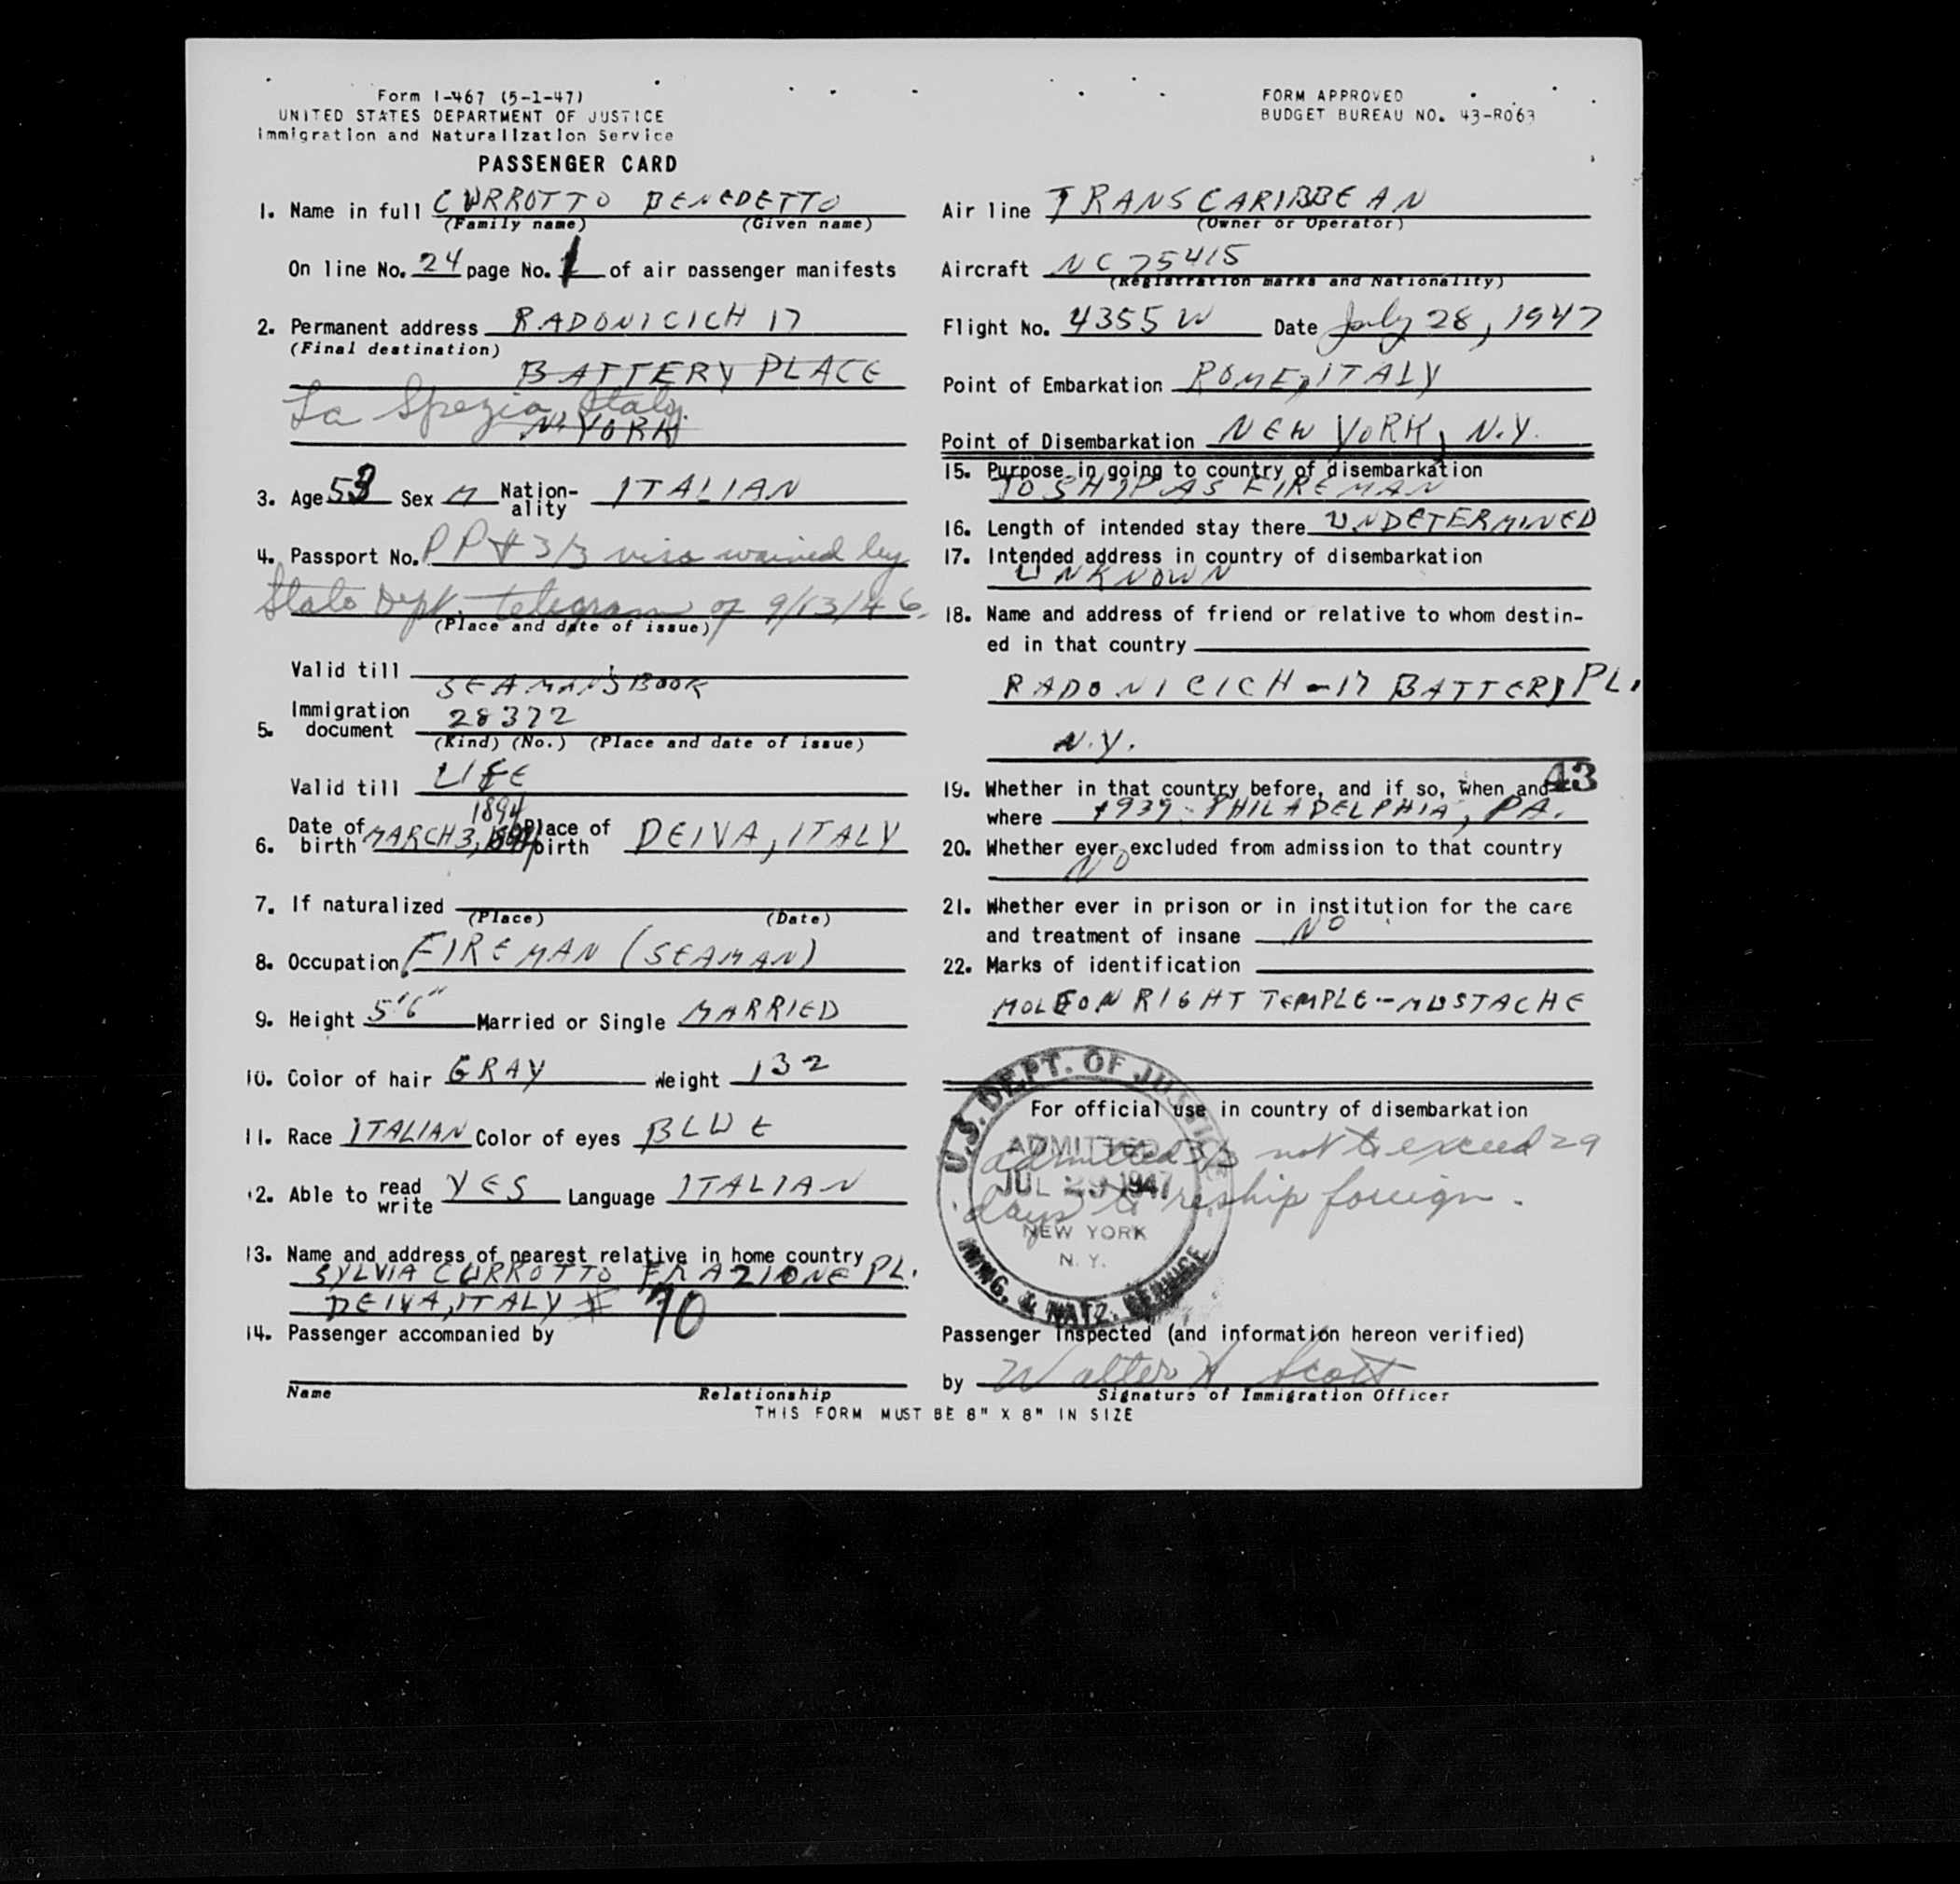 Form I-467 (5-1-47)
UNITED STATES DEPARTMENT OF JUSTICE
Immigration and Naturalization Service
PASSENGER CARD
FORM APPROVED
BUDGET BUREAU NO. 43-R063
1. Name in full CURROTTO BENEDETTO
(Family name) (Given name)
On line No. 24 page No. 1 of air passenger manifests
2. Permanent address RADONICICH 17
(Final destination)
BATTERY PLACE
La Spezia, Italy.
N. YORK
3. Age 53 Sex M Nation-ality ITALIAN
4. Passport No. PP# 3/3 visa waived by
State Dept. telegram of 9/13/46.
(Place and date of issue)
Valid till
SEAMAN'S BOOK
5. Immigration document 28372
(Kind) (No.) (Place and date of issue)
Valid till LIFE
1894
6. Date of birth MARCH 3, Place of birth DEIVA, ITALY
7. If naturalized
(Place) (Date)
8. Occupation FIREMAN (SEAMAN)
9. Height 5'6" Married or Single MARRIED
10. Color of hair GRAY Weight 132
11. Race ITALIAN Color of eyes BLUE
12. Able to read write YES Language ITALIAN
13. Name and address of nearest relative in home country
SYLVIA CURROTTO FRAZIONE PL.
DEIVA, ITALY # 70
14. Passenger accompanied by
Name Relationship
Air line TRANSCARIBBEAN
(Owner or Operator)
Aircraft NC75415
(Registration marks and Nationality)
Flight No. 4355W Date July 28, 1947
Point of Embarkation ROME, ITALY
Point of Disembarkation NEW YORK, N.Y.
15. Purpose in going to country of disembarkation
TO SHIP AS FIREMAN
16. Length of intended stay there UNDETERMINED
17. Intended address in country of disembarkation
UNKNOWN
18. Name and address of friend or relative to whom destin-
ed in that country
RADONICICH - 17 BATTERY PL.
N.Y.
43
19. Whether in that country before, and if so, when and
where 1939 - PHILADELPHIA, PA.
20. Whether ever excluded from admission to that country
NO
21. Whether ever in prison or in institution for the care
and treatment of insane NO
22. Marks of identification
MOLE ON RIGHT TEMPLE - MUSTACHE
For official use in country of disembarkation
U.S. DEPT. OF JUSTICE
ADMITTED
JUL 29 1947
NEW YORK
N. Y.
IMMIG. & NATZ. SERVICE
admitted 3/3 not to exceed 29
days to reship foreign.
Passenger Inspected (and information hereon verified)
by Walter H Scott
Signature of Immigration Officer
THIS FORM MUST BE 8" X 8" IN SIZE